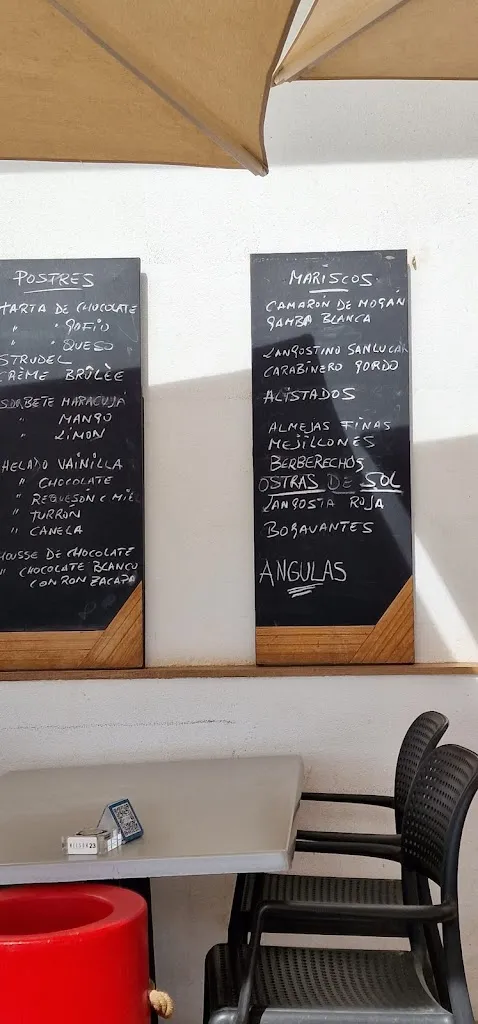 POSTRES
TARTA DE CHOCOLATE
" " GOFIO
" " QUESO
STRUDEL
CRÈME BRÛLÈE
SORBETE MARACUYÁ
" MANGO
" LIMON
HELADO VAINILLA
" CHOCOLATE
" REQUESON C MIEL
" TURRÓN
" CANELA
MOUSSE DE CHOCOLATE
" CHOCOLATE BLANCO
CON RON ZACAPA
MARISCOS
CAMARÓN DE MOGÁN
GAMBA BLANCA
LANGOSTINO SANLUCAR
CARABINERO GORDO
ALISTADOS
ALMEJAS FINAS
MEJILLONES
BERBERECHOS
OSTRAS DE SOL
LANGOSTA ROJA
BOGAVANTES
ANGULAS